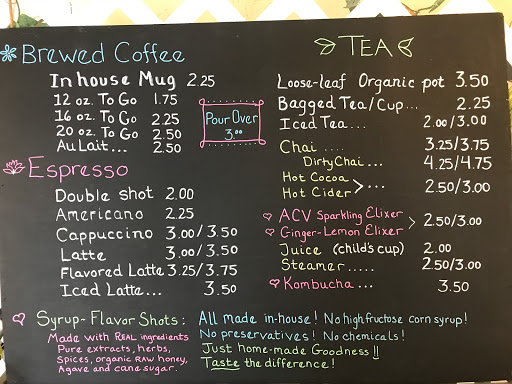 Brewed Coffee
In house Mug 2.25
12 oz. To Go 1.75
16 oz. To Go 2.25
20 oz. To Go 2.50
Au Lait... 2.50
Pour Over
3.00
Espresso
Double shot 2.00
Americano 2.25
Cappuccino 3.00/3.50
Latte 3.00/3.50
Flavored Latte 3.25/3.75
Iced Latte... 3.50
TEA
Loose-leaf Organic pot 3.50
Bagged Tea/Cup... 2.25
Iced Tea... 2.00/3.00
Chai .... 3.25/3.75
Dirty Chai ... 4.25/4.75
Hot Cocoa
Hot Cider > ... 2.50/3.00
ACV Sparkling Elixer
Ginger-Lemon Elixer > 2.50/3.00
Juice (child's cup) 2.00
Steamer..... 2.50/3.00
Kombucha... 3.50
Syrup-Flavor Shots:
Made with REAL ingredients
Pure extracts, herbs,
Spices, organic RAW honey,
Agave and cane sugar.
All made in-house! No high fructose corn syrup!
No preservatives! No chemicals!
Just home-made Goodness!!
Taste the difference!